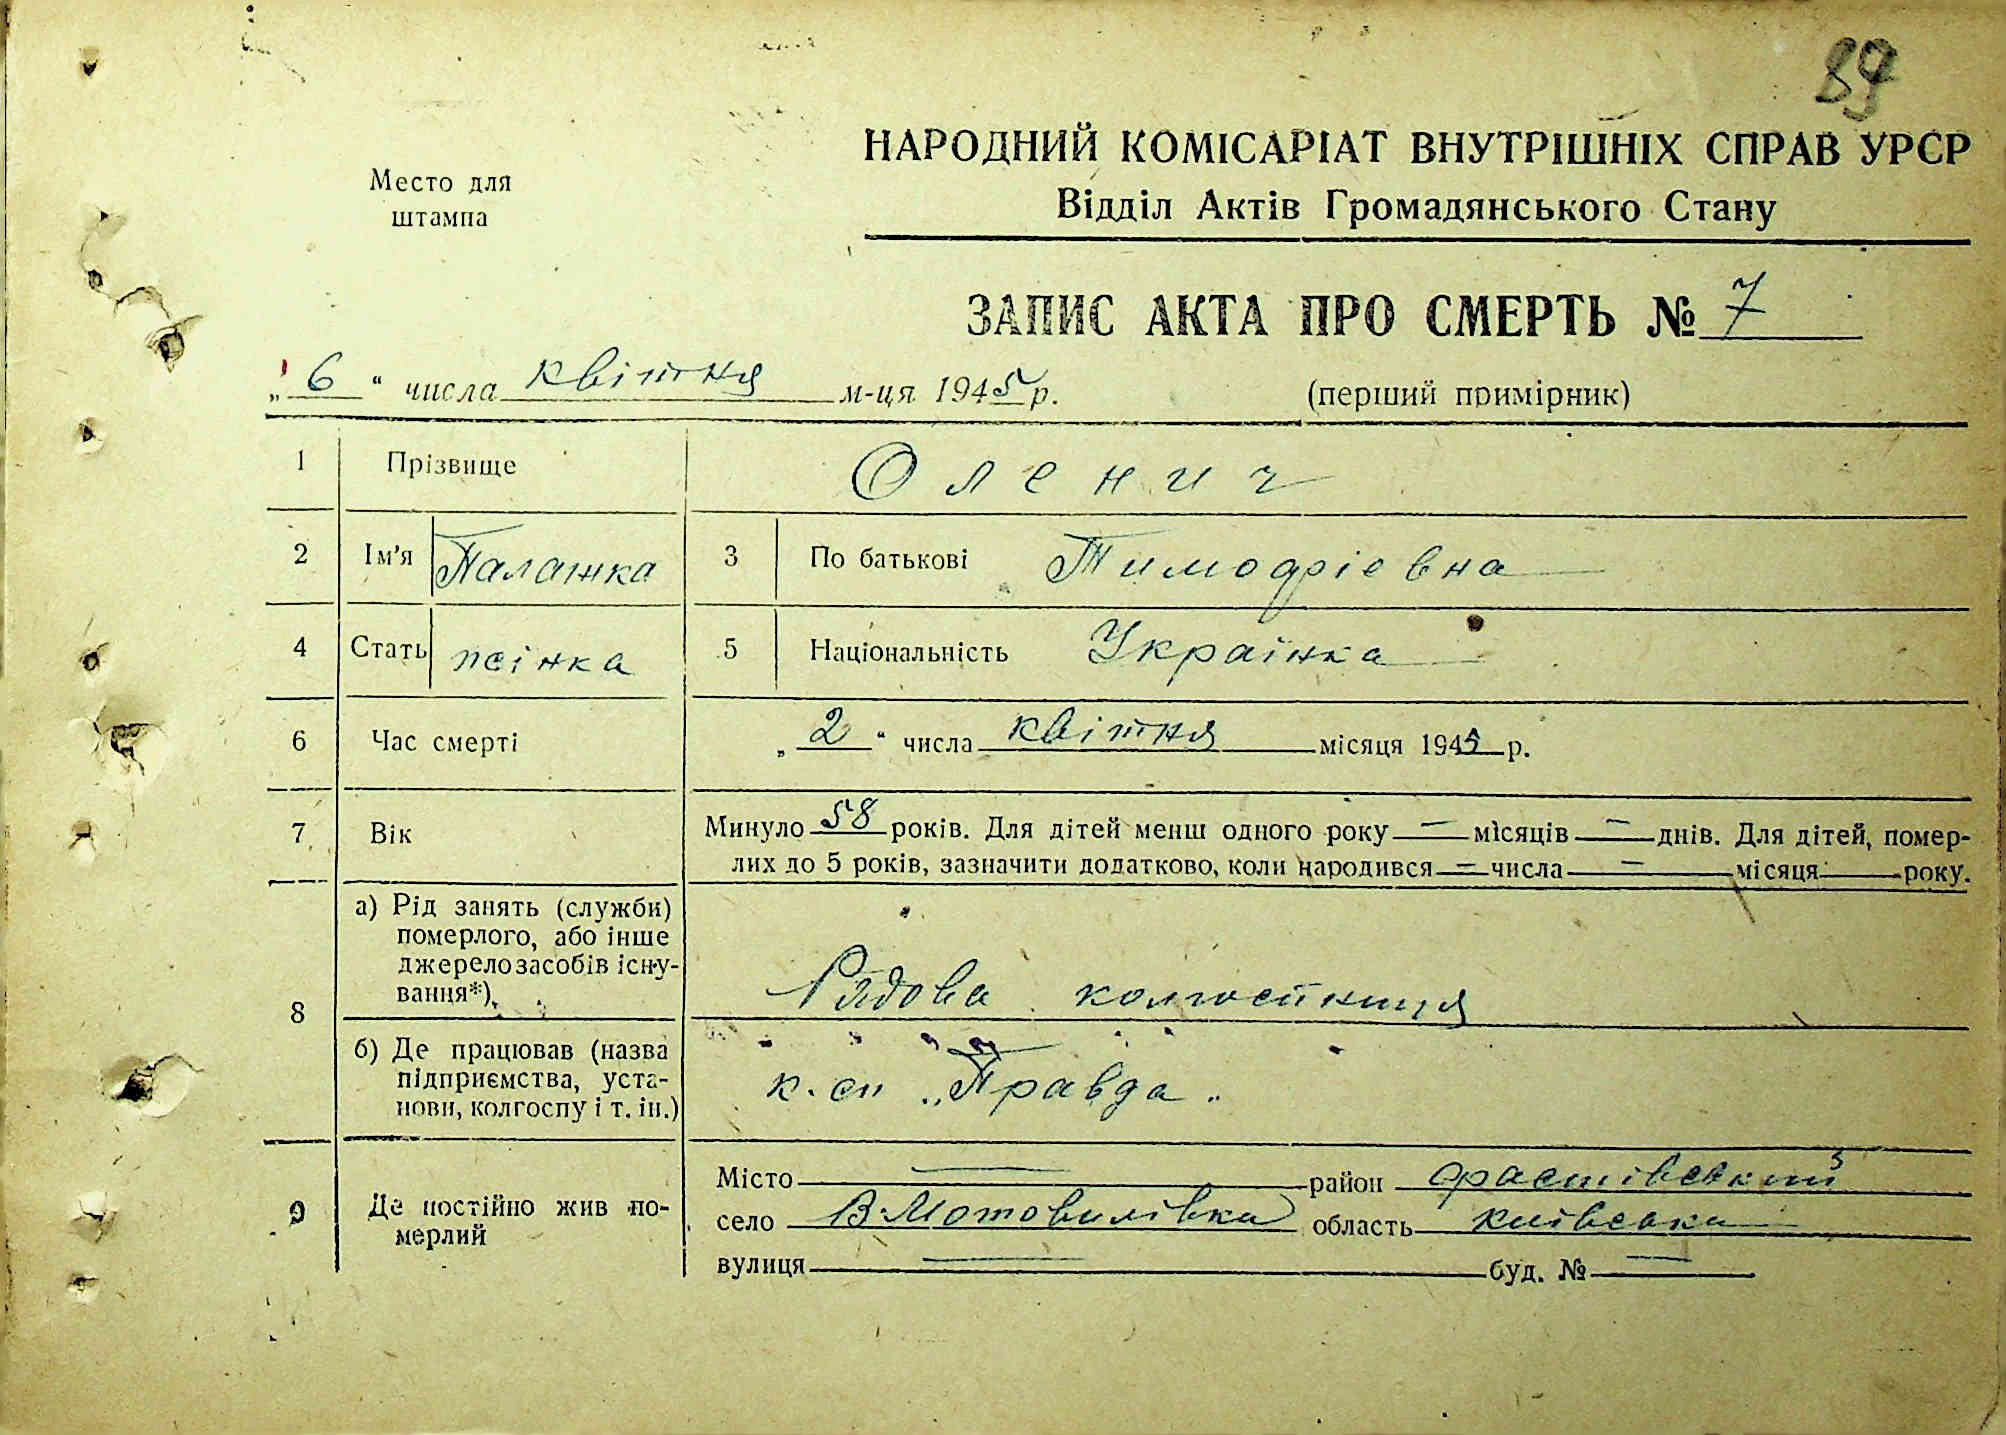 89
НАРОДНИЙ КОМІСАРІАТ ВНУТРІШНІХ СПРАВ УРСР
Место для
штампа
Відділ Актів Громадянського Стану
ЗАПИС АКТА ПРО СМЕРТЬ № 7
„6“ числа квітня м-ця 1945 р.
(перший примірник)
1 Прізвище Оленич
2 Ім'я Палажка 3 По батькові Тимофіевна
4 Стать жінка 5 Національність Українка
6 Час смерті „2“ числа квітня місяця 1945 р.
7 Вік Минуло 58 років. Для дітей менш одного року — місяців — днів. Для дітей, помер-
лих до 5 років, зазначити додатково, коли народився — числа — місяця року.
8 а) Рід занять (служби)
померлого, або інше
джерело засобів існу-
вання*)
Рядова колгоспниця
б) Де працював (назва
підприємства, уста-
нови, колгоспу і т. ін.)
к. сп „Правда"
9 Де постійно жив по-
мерлий
Місто — район фастівський
село В-Мотовилівка область київська
вулиця — буд. № —